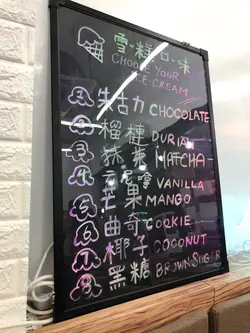 雪糕口味
CHOOSE YOUR
ICE-CREAM
1 朱古力 CHOCOLATE
2 榴槤 DURIAN
3 抹茶 MATCHA
4 云尼拿 VANILLA
5 芒果 MANGO
6 曲奇 COOKIE
7 椰子 COCONUT
8 黑糖 BROWN SUGAR